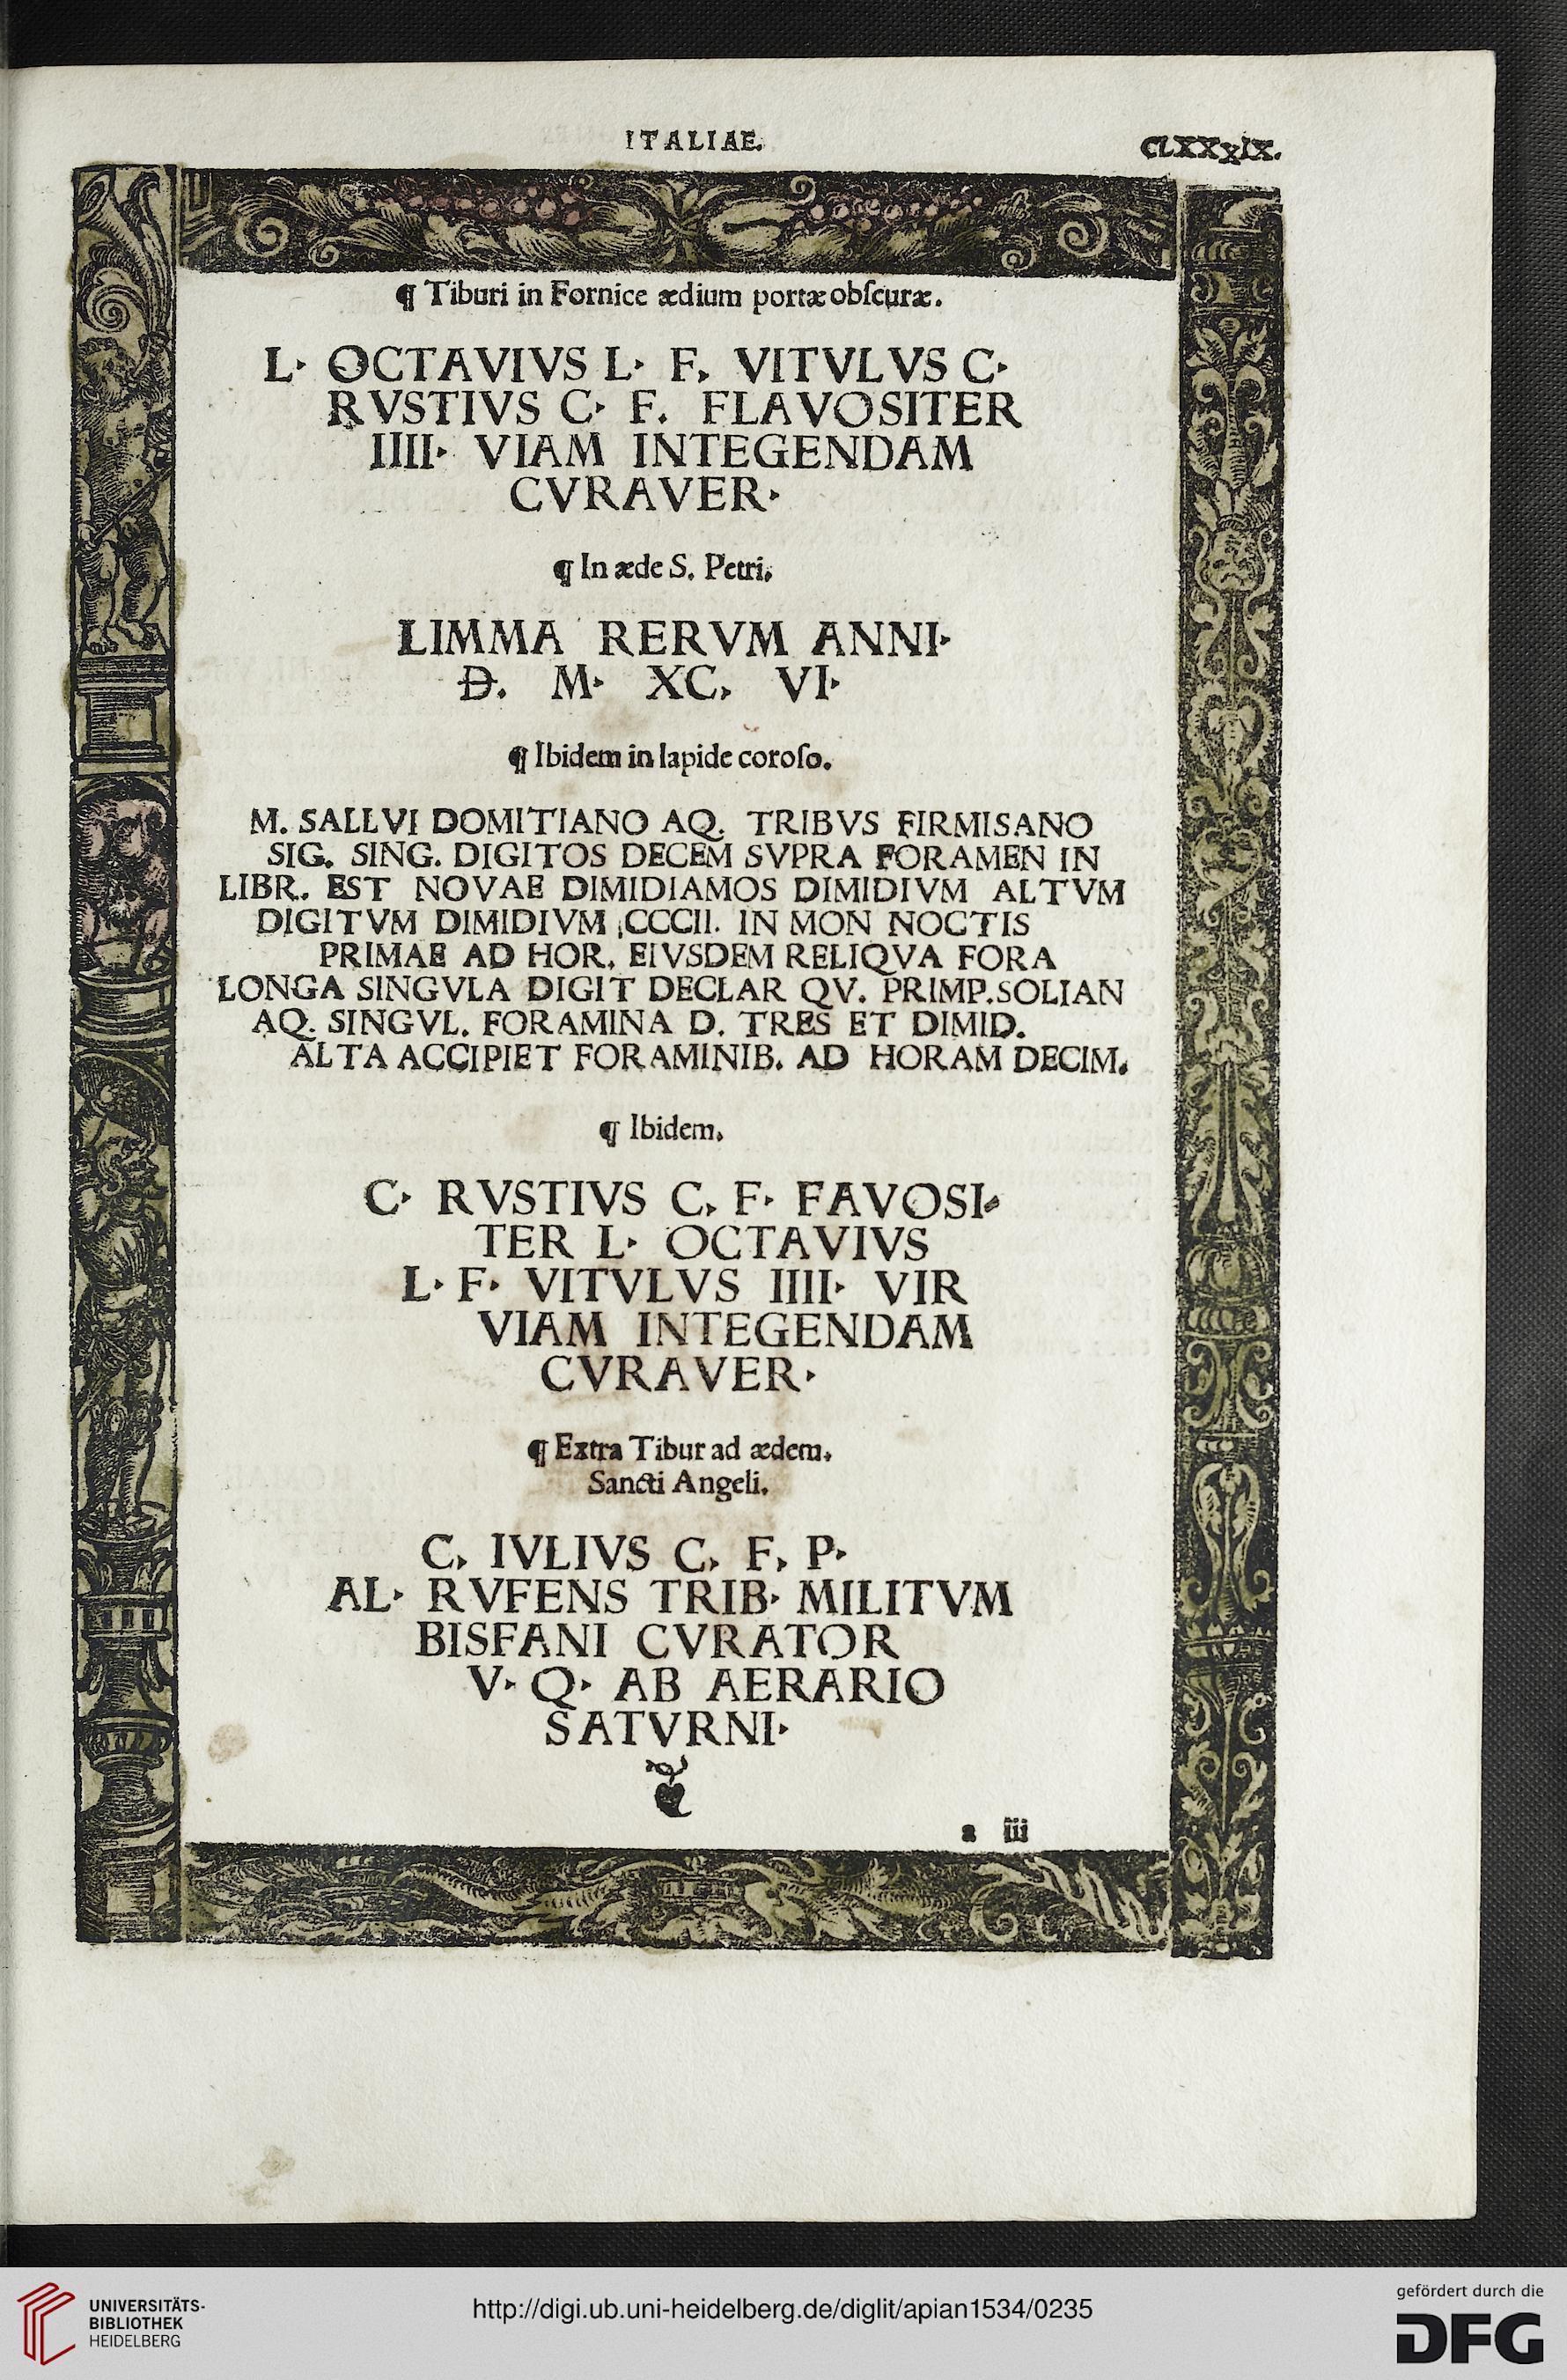 ITALIAE.
CLXXXIX.
¶ Tiburi in Fornice ædium portæ obſcuræ.
L· OCTAVIVS L· F, VITVLVS C·
RVSTIVS C· F. FLAVOSITER
IIII· VIAM INTEGENDAM
CVRAVER·
¶ In æde S. Petri,
LIMMA RERVM ANNI·
Đ. M· XC, VI·
¶ Ibidem in lapide coroſo.
M. SALLVI DOMITIANO AQ. TRIBVS FIRMISANO
SIG. SING. DIGITOS DECEM SVPRA FORAMEN IN
LIBR. EST NOVAE DIMIDIAMOS DIMIDIVM ALTVM
DIGITVM DIMIDIVM CCCII. IN MON NOCTIS
PRIMAE AD HOR. EIVSDEM RELIQVA FORA
LONGA SINGVLA DIGIT DECLAR QV. PRIMP.SOLIAN
AQ. SINGVL. FORAMINA D. TRES ET DIMID.
ALTA ACCIPIET FORAMINIB. AD HORAM DECIM.
¶ Ibidem,
C· RVSTIVS C, F· FAVOSI⸗
TER L· OCTAVIVS
L· F· VITVLVS IIII· VIR
VIAM INTEGENDAM
CVRAVER·
¶ Extra Tibur ad ædem,
Sancti Angeli.
C, IVLIVS C, F, P·
AL· RVFENS TRIB· MILITVM
BISFANI CVRATOR
V· Q· AB AERARIO
SATVRNI·
a iii
UNIVERSITÄTS-
BIBLIOTHEK
HEIDELBERG
http://digi.ub.uni-heidelberg.de/diglit/apian1534/0235
gefördert durch die
DFG